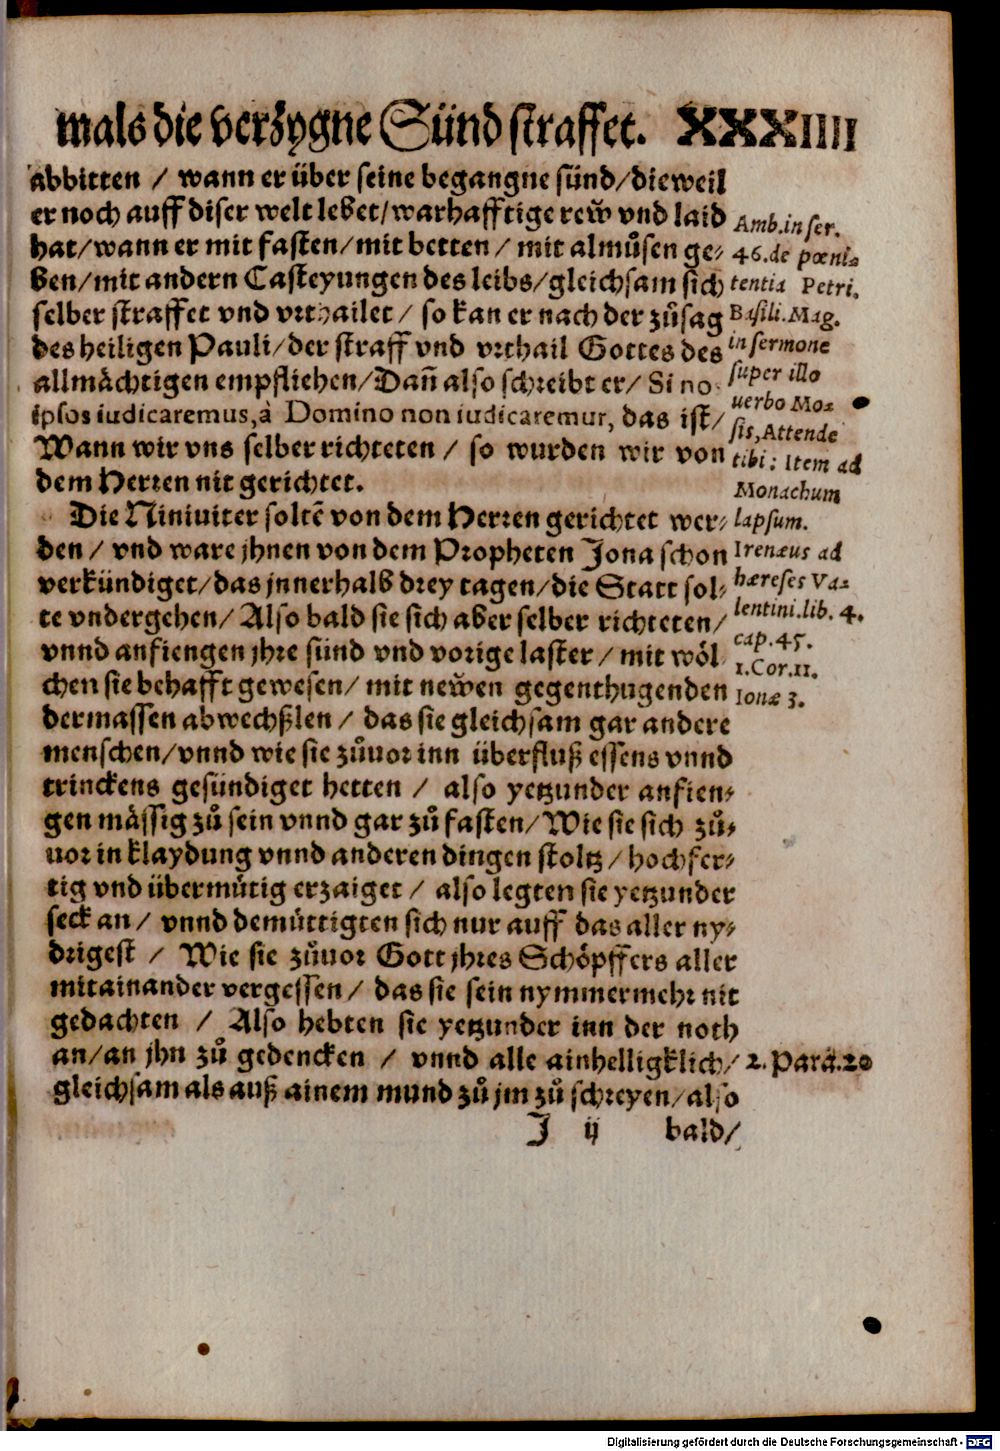 mals die verzygne Sünd straffet. XXXIIII
abbitten / wann er über seine begangne sünd/dieweil
er noch auff diser welt lebet/warhafftige rew̃ vnd laid
hat/wann er mit fasten/mit betten / mit almůsen ge-
ben/mit andern Casteyungen des leibs/gleichsam sich
selber straffet vnd vrthailet / so kan er nach der zůsag
des heiligen Pauli/der straff vnd vrthail Gottes des
allmächtigen empfliehen/Dañ also schreibt er/ Si nos
ipsos iudicaremus, à Domino non iudicaremur, das ist/
Wann wir vns selber richteten / so wurden wir von
dem Herren nit gerichtet.
Die Niniuiter soltē von dem Herren gerichtet wer-
den / vnd ware jhnen von dem Propheten Jona schon
verkündiget/das jnnerhalb drey tagen/die Statt sol-
te vndergehen/ Also bald sie sich aber selber richteten/
vnnd anfiengen jhre sünd vnd vorige laster / mit wöl-
chen sie behafft gewesen/ mit new̃en gegenthugenden
dermassen abwechßlen / das sie gleichsam gar andere
menschen/vnnd wie sie zůuor inn überfluß essens vnnd
trinckens gesündiget hetten / also yetzunder anfien-
gen mässig zů sein vnnd gar zů fasten/Wie sie sich zů-
uor in klaydung vnnd anderen dingen stoltz / hochfer-
tig vnd übermůtig erzaiget / also legten sie yetzunder
seck an / vnnd demůttigten sich nur auff das aller ny-
drigest / Wie sie zůuor Gott jhres Schöpffers aller
mitainander vergessen / das sie sein nymmermehr nit
gedachten / Also hebten sie yetzunder inn der noth
an/an jhn zů gedencken / vnnd alle ainhelligklich/
gleichsam als auß ainem mund zů jm zů schreyen/also
J ij bald/
Amb. in ser.
46. de pœni-
tentia Petri.
Basili. Mag.
in sermone
super illo
uerbo Mo-
sis, Attende
tibi: Item ad
Monachum
lapsum.
Irenæus ad
hæreses Va-
lentini. lib. 4.
cap. 45.
1. Cor. 11.
Ionæ 3.
2. Para. 20
Digitalisierung gefördert durch die Deutsche Forschungsgemeinschaft - DFG